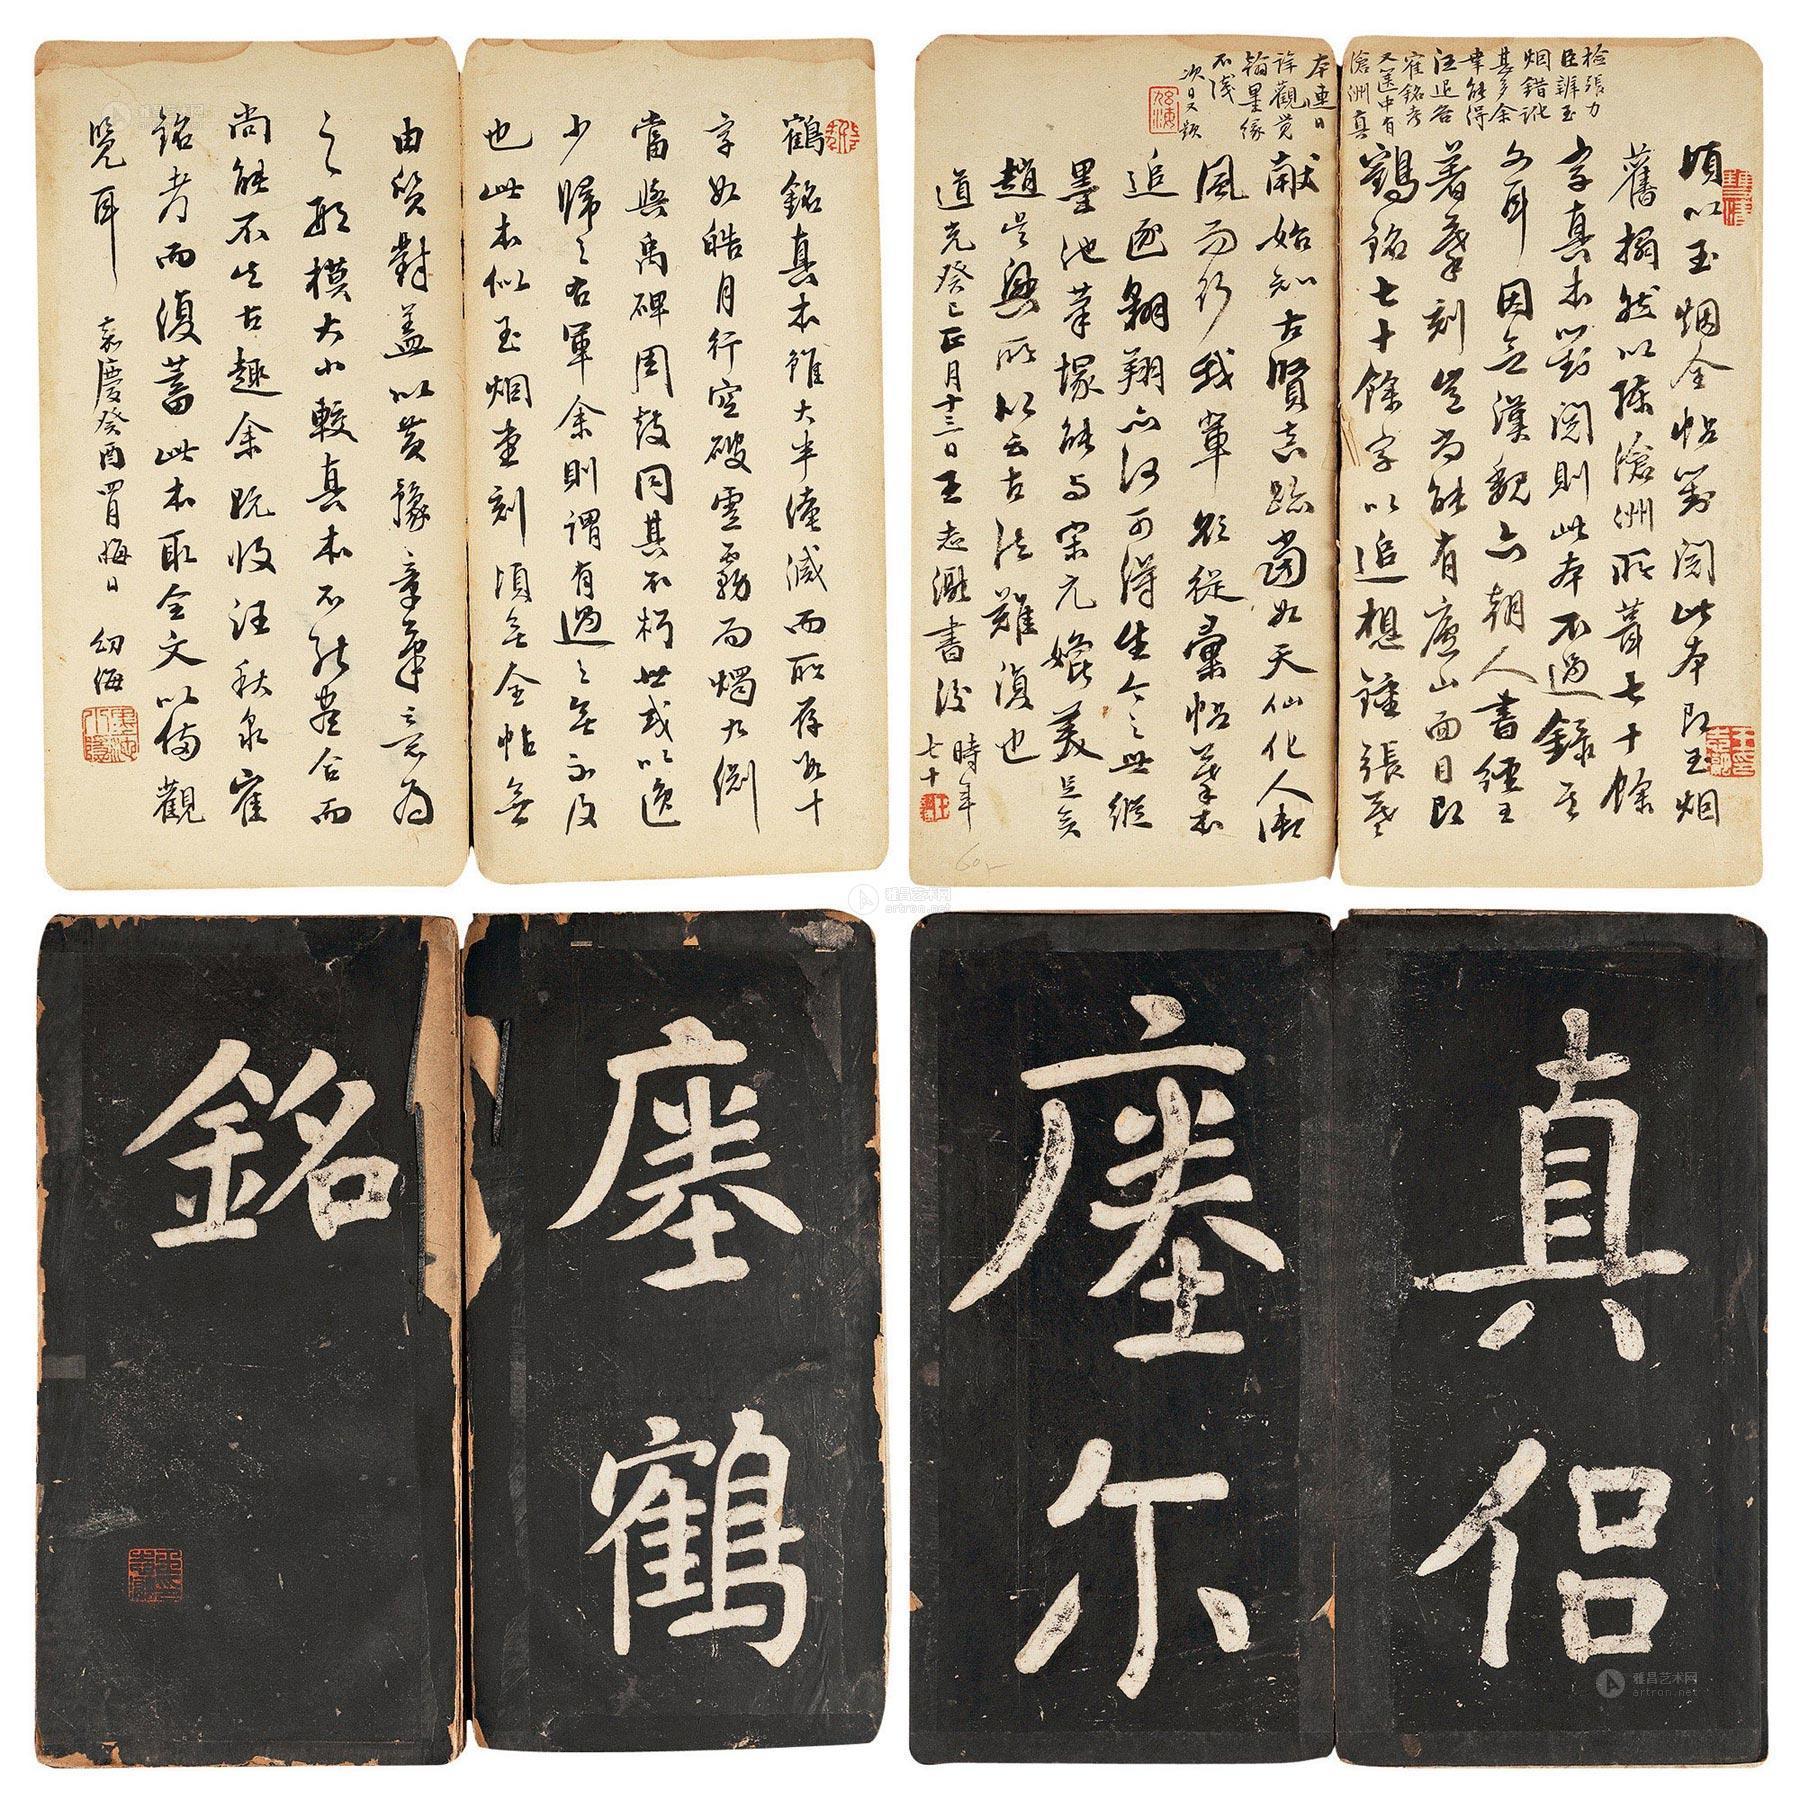 鶴銘真本雖大半漶滅而所存數十
字如皓月行空破雲霧而燭九淵
當與禹碑周鼓同其不朽世或以逸
少歸之右軍余則謂有過之無不及
也此本似玉烟堂刻頃無全帖無
由質對蓋以黃豫章筆意為
之取模大小較真本不能盡合而
尚能不失古趣余既收汪秋泉寉
銘考而復蓄此本取全文以備觀
覽耳 嘉慶癸酉胃晦日 幼海
頃以玉烟全帖對閱此本即玉烟
舊搨然以陳滄洲所葺七十餘
字真本對閱則此本不過錄其
文耳因之漢魏六朝人書經王
著摹刻豈尚能有廬山面目即
鶴銘七十餘字以追想鍾張羲
獻始知古賢真跡當如天仙化人御
風而行我輩欲從彙帖摹本
追逐翱翔亦何可得生今之世縱
墨池筆塚能與宋元媲美足矣
趙吳興所以云古法難復也
道光癸巳正月十三日王志瀜書後 時年
七十
檢張力
臣辨玉
烟錯訛
甚多余
幸能得
汪退谷
寉銘考
又篋中有
滄洲真
本連日
詳觀覺
翰墨緣
不淺
次日又題
瘞鶴
銘
真侶
瘞尔
雅昌艺术网
artron.net